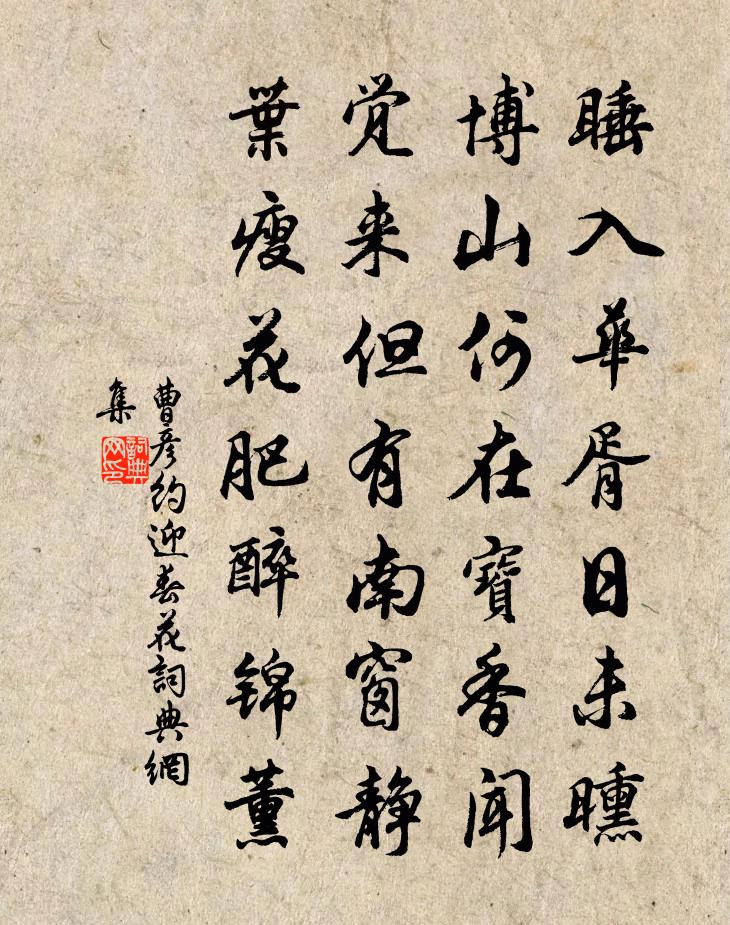 睡入華胥日未曛
博山何在寶香闻
觉来但有南窗静
葉瘦花肥醉锦薰
曹彦约迎春花詞典網
集
詞典
网印